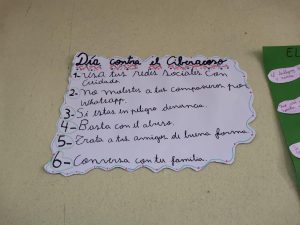 Día contra el Ciberacoso
1- Usa tus redes sociales con
cuidado.
2- no molestes a tus compañeros por
whatsapp.
3- Si estas en peligro denuncia.
4- Basta con el abuso.
5- Trata a tus amigos de buena forma
6- Conversa con tu familia.